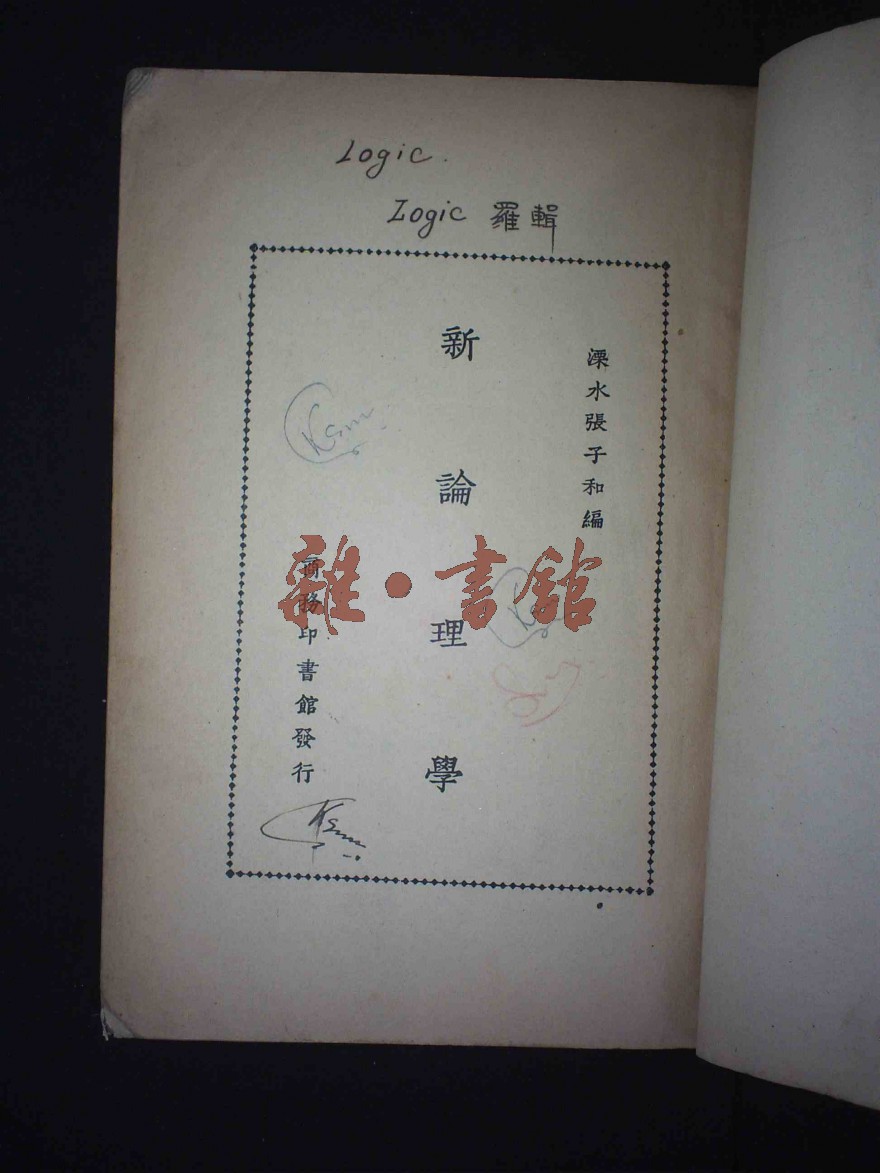 Logic.
Logic 羅輯
溧水張子和編
新論理學
商務印書館發行
雜·書館
Ksm
Ksm